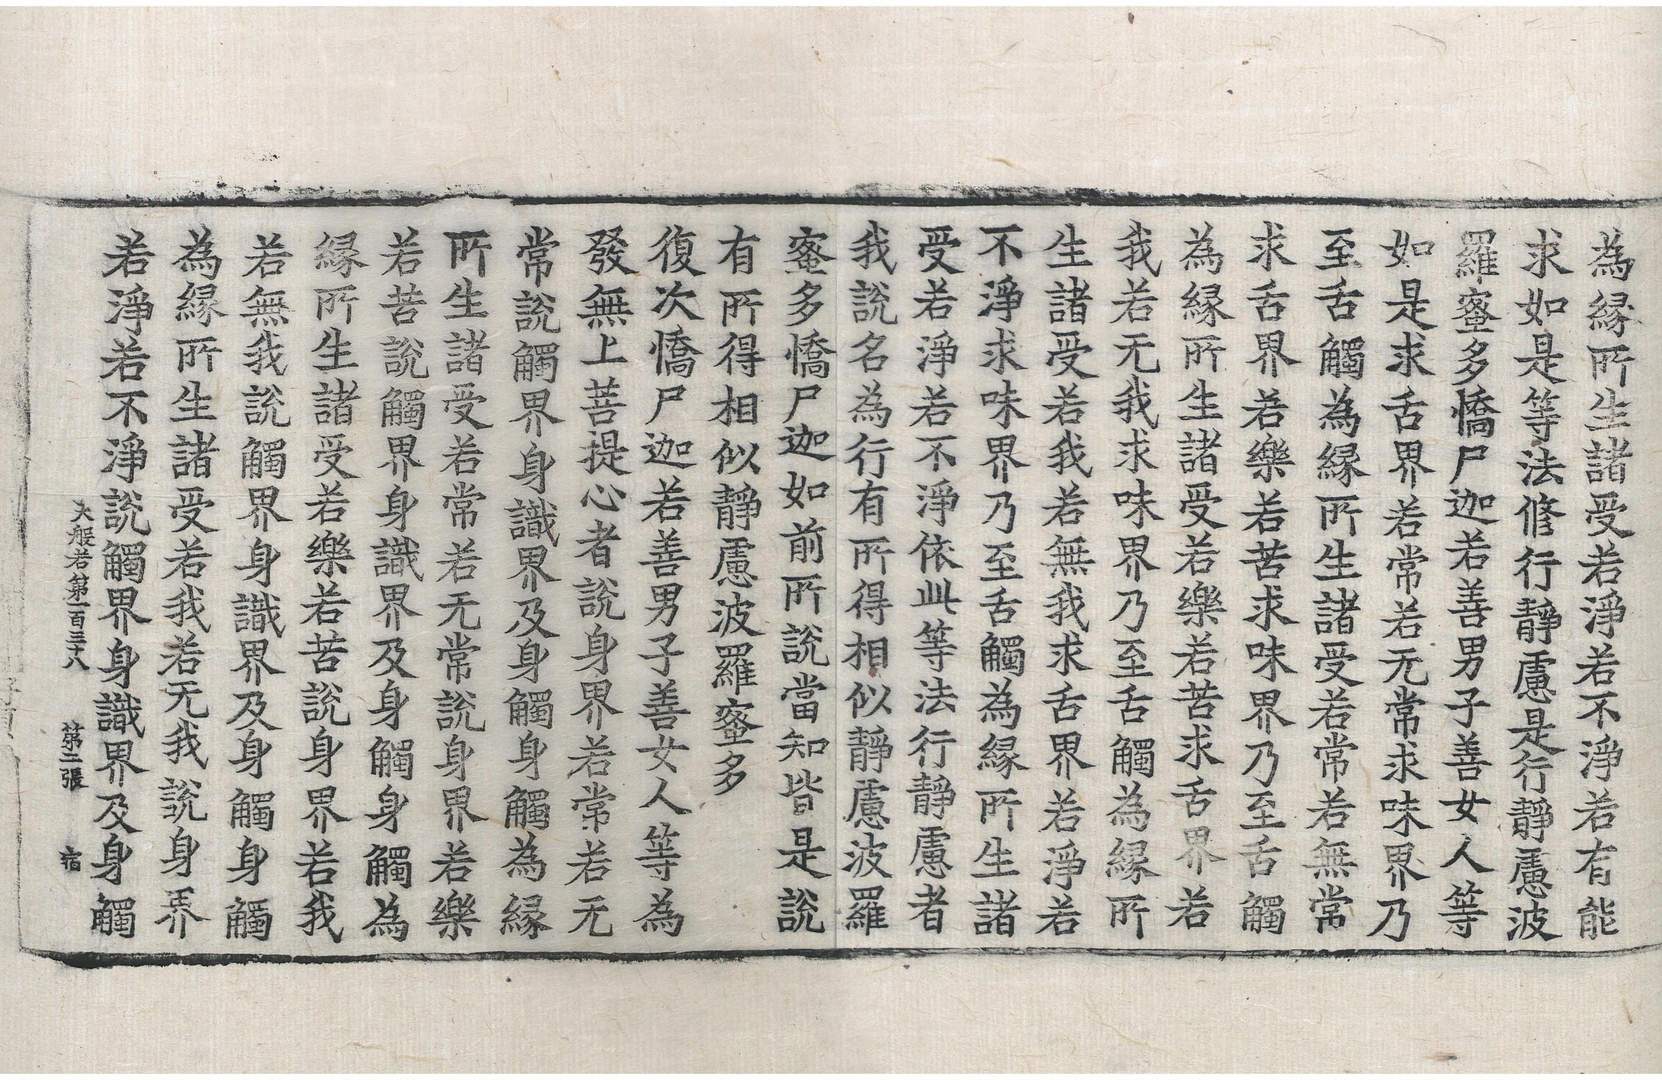 為緣所生諸受若淨若不淨若有能
求如是等法修行靜慮是行靜慮波
羅蜜多憍尸迦若善男子善女人等
如是求舌界若常若无常求味界乃
至舌觸為緣所生諸受若常若無常
求舌界若樂若苦求味界乃至舌觸
為緣所生諸受若樂若苦求舌界若
我若无我求味界乃至舌觸為緣所
生諸受若我若無我求舌界若淨若
不淨求味界乃至舌觸為緣所生諸
受若淨若不淨依此等法行靜慮者
我說名為行有所得相似靜慮波羅
蜜多憍尸迦如前所說當知皆是說
有所得相似靜慮波羅蜜多
復次憍尸迦若善男子善女人等為
發無上菩提心者說身界若常若无
常說觸界身識界及身觸身觸為緣
所生諸受若常若无常說身界若樂
若苦說觸界身識界及身觸身觸為
緣所生諸受若樂若苦說身界若我
若無我說觸界身識界及身觸身觸
為緣所生諸受若我若无我說身界
若淨若不淨說觸界身識界及身觸
大般若第一百三十八 第二張 宿